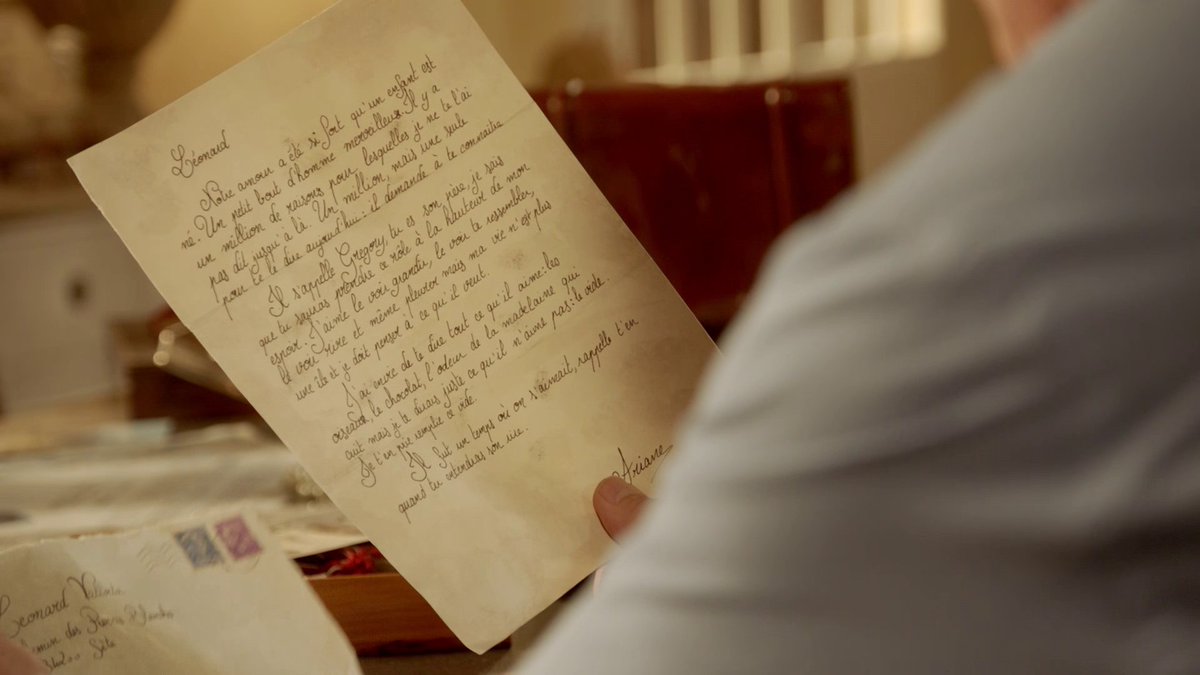 Léonard
Notre amour a été si fort qu'un enfant est
né. Un petit bout d'homme merveilleux. Il y a
un million de raisons pour lesquelles je ne te l'ai
pas dit jusqu'à là. Un million, mais une seule
pour te le dire aujourd'hui: il demande à te connaître
Il s'appelle Gregory, tu es son père, je sais
que tu sauras prendre ce rôle à la hauteur de mon
espoir. J'aime le voir grandir, le voir te ressembler,
le voir rire et même pleurer mais ma vie n'est plus
une île et je dois penser à ce qu'il veut.
J'ai envie de te dire tout ce qu'il aime: les
oiseaux, le chocolat, l'odeur de la madelaine qui
cuit mais je te dirais juste ce qu'il n'aime pas: le vide.
Je t'en prie remplie ce vide.
Il fut un temps où on s'aimait, rappelle t'en
quand tu entendras son rire.
Ariane
Leonard
des Pierres Blanches
Sète